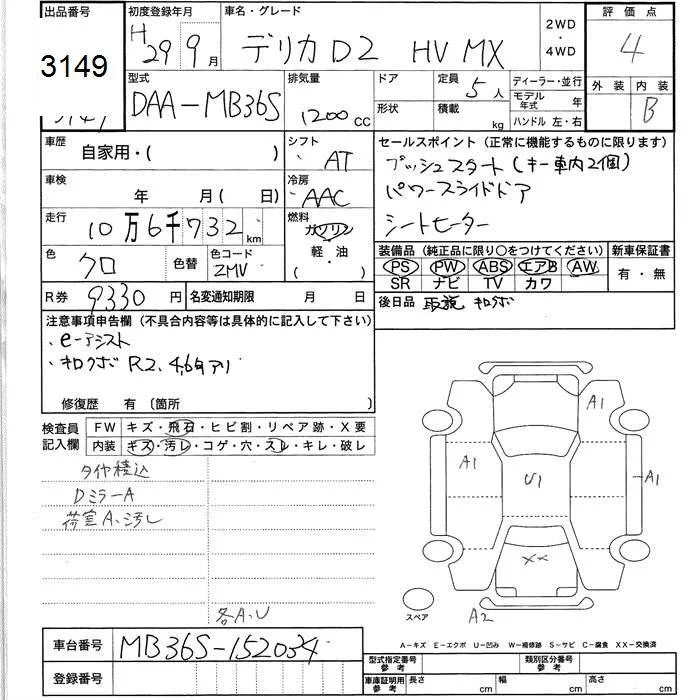 出品番号 初度登録年月 車名・グレード 2WD・4WD 評価点
3149 H29 9月 デリカD2 HV MX 4
型式 排気量 ドア 定員 5人 ディーラー・並行 外装 内装
DAA-MB36S 1200cc 形状 積載 kg モデル年式 年 B
ハンドル 左・右
車歴 シフト セールスポイント(正常に機能するものに限ります)
自家用・( ) AT プッシュスタート(キー車内2個)
車検 冷房 パワースライドドア
年 月( 日) AAC シートヒーター
走行 燃料
10万6千732km ガソリン
軽・油
( )
色 色替 色コード 装備品(純正品に限り○をつけてください) 新車保証書
クロ ZMV PS PW ABS エアB AW 有・無
SR ナビ TV カワ
R券 9330円 名変通知期限 月 日 後日品 取説 キロクボ
注意事項申告欄(不具合内容等は具体的に記入して下さい)
・e-アシスト
・キロクボ R2.4,6々アリ
修復歴 有 〔箇所 〕
検査員記入欄 FW キズ・飛石・ヒビ割・リペア跡・X要
内装 キズ・汚レ・コゲ・穴・スレ・キレ・破レ
タイヤ積込
DミラーA
荷室A、汚レ
各A.U
A1
A1
U1
A1
XX
A2
スペア
A-キズ E-エクボ U-凹み W-補修跡 S-サビ C-腐食 XX-交換済
車台番号 MB36S-152034
登録番号
型式指定番号 参考 類別区分番号 参考
車庫証明用 参考 長さ cm 幅 cm 高さ cm